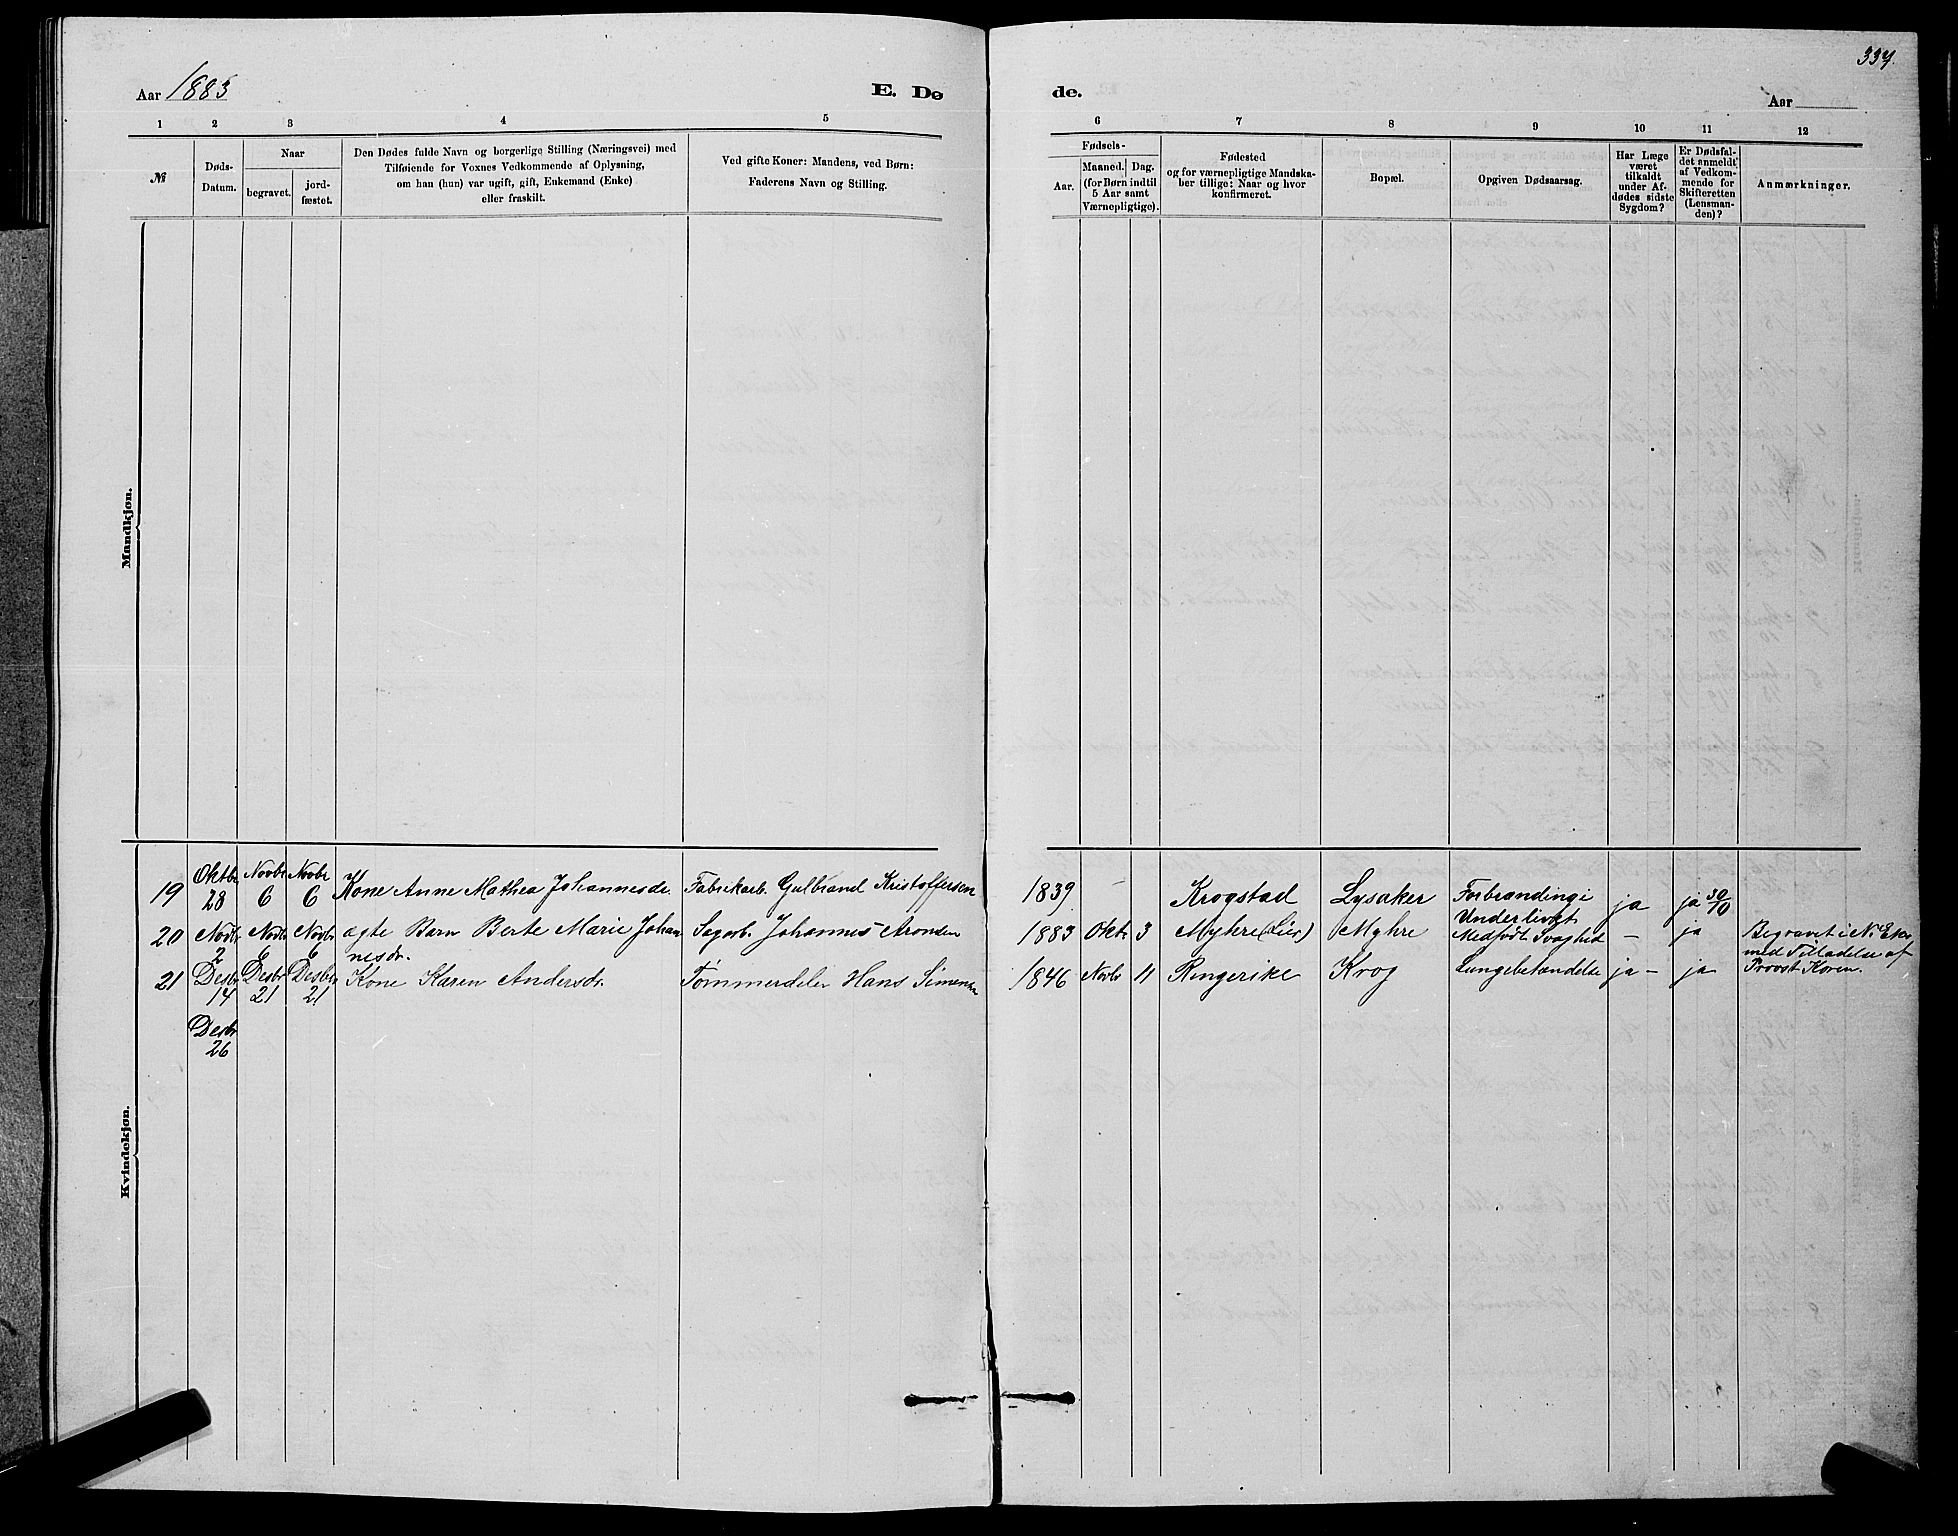 337.
Aar 1883
E. Dø
de.
Aar
1 2 3 4 5
6 7 8 9 10 11 12
№
Døds-
Datum.
Naar
begravet.
jord-
fæstet.
Den Dødes fulde Navn og borgerlige Stilling (Næringsvei) med
Tilføiende for Voxnes Vedkommende af Oplysning,
om han (hun) var ugift, gift, Enkemand (Enke)
eller fraskilt.
Ved gifte Koner: Mandens, ved Børn:
Faderens Navn og Stilling.
Fødsels-
Aar.
Maaned. Dag.
(for Børn indtil
5 Aar samt
Værnepligtige).
Fødested
og for værnepligtige Mandska-
ber tillige: Naar og hvor
konfirmeret.
Bopæl.
Opgiven Dødsaarsag.
Har Læge
været
tilkaldt
under Af-
dødes sidste
Sygdom?
Er Dødsfal-
det anmeldt
af Vedkom-
mende for
Skifteretten
(Lensman-
den)?
Anmærkninger.
Mandkjøn.
Kvindekjøn.
19 Oktbr 28 Novbr 6 Novbr 6 Kone Anne Mathea Johannesdr. Fabrikarb. Gulbrand Kristoffersen 1839 - Krogstad Lysaker Forbrænding i Underlivet ja ja 30/10
20 Novbr 2 Novbr 6 Novbr 6 ægte Barn Berte Marie Johan
nesdr. Sagarb. Johannes Aronsen 1883 Oktr 3 Myhre (Lier) Myhre Medfødt Svaghed - ja Begravet i N. Eker
med Tilladelse af
Provst Koren.
21 Desbr 14 Desbr 21 Desbr 21 Kone Karen Andersdr. Tømmerdeler Hans Simensen 1846 Novbr 11 Ringerike Krog Lungebetændelse ja - ja
Desbr
26